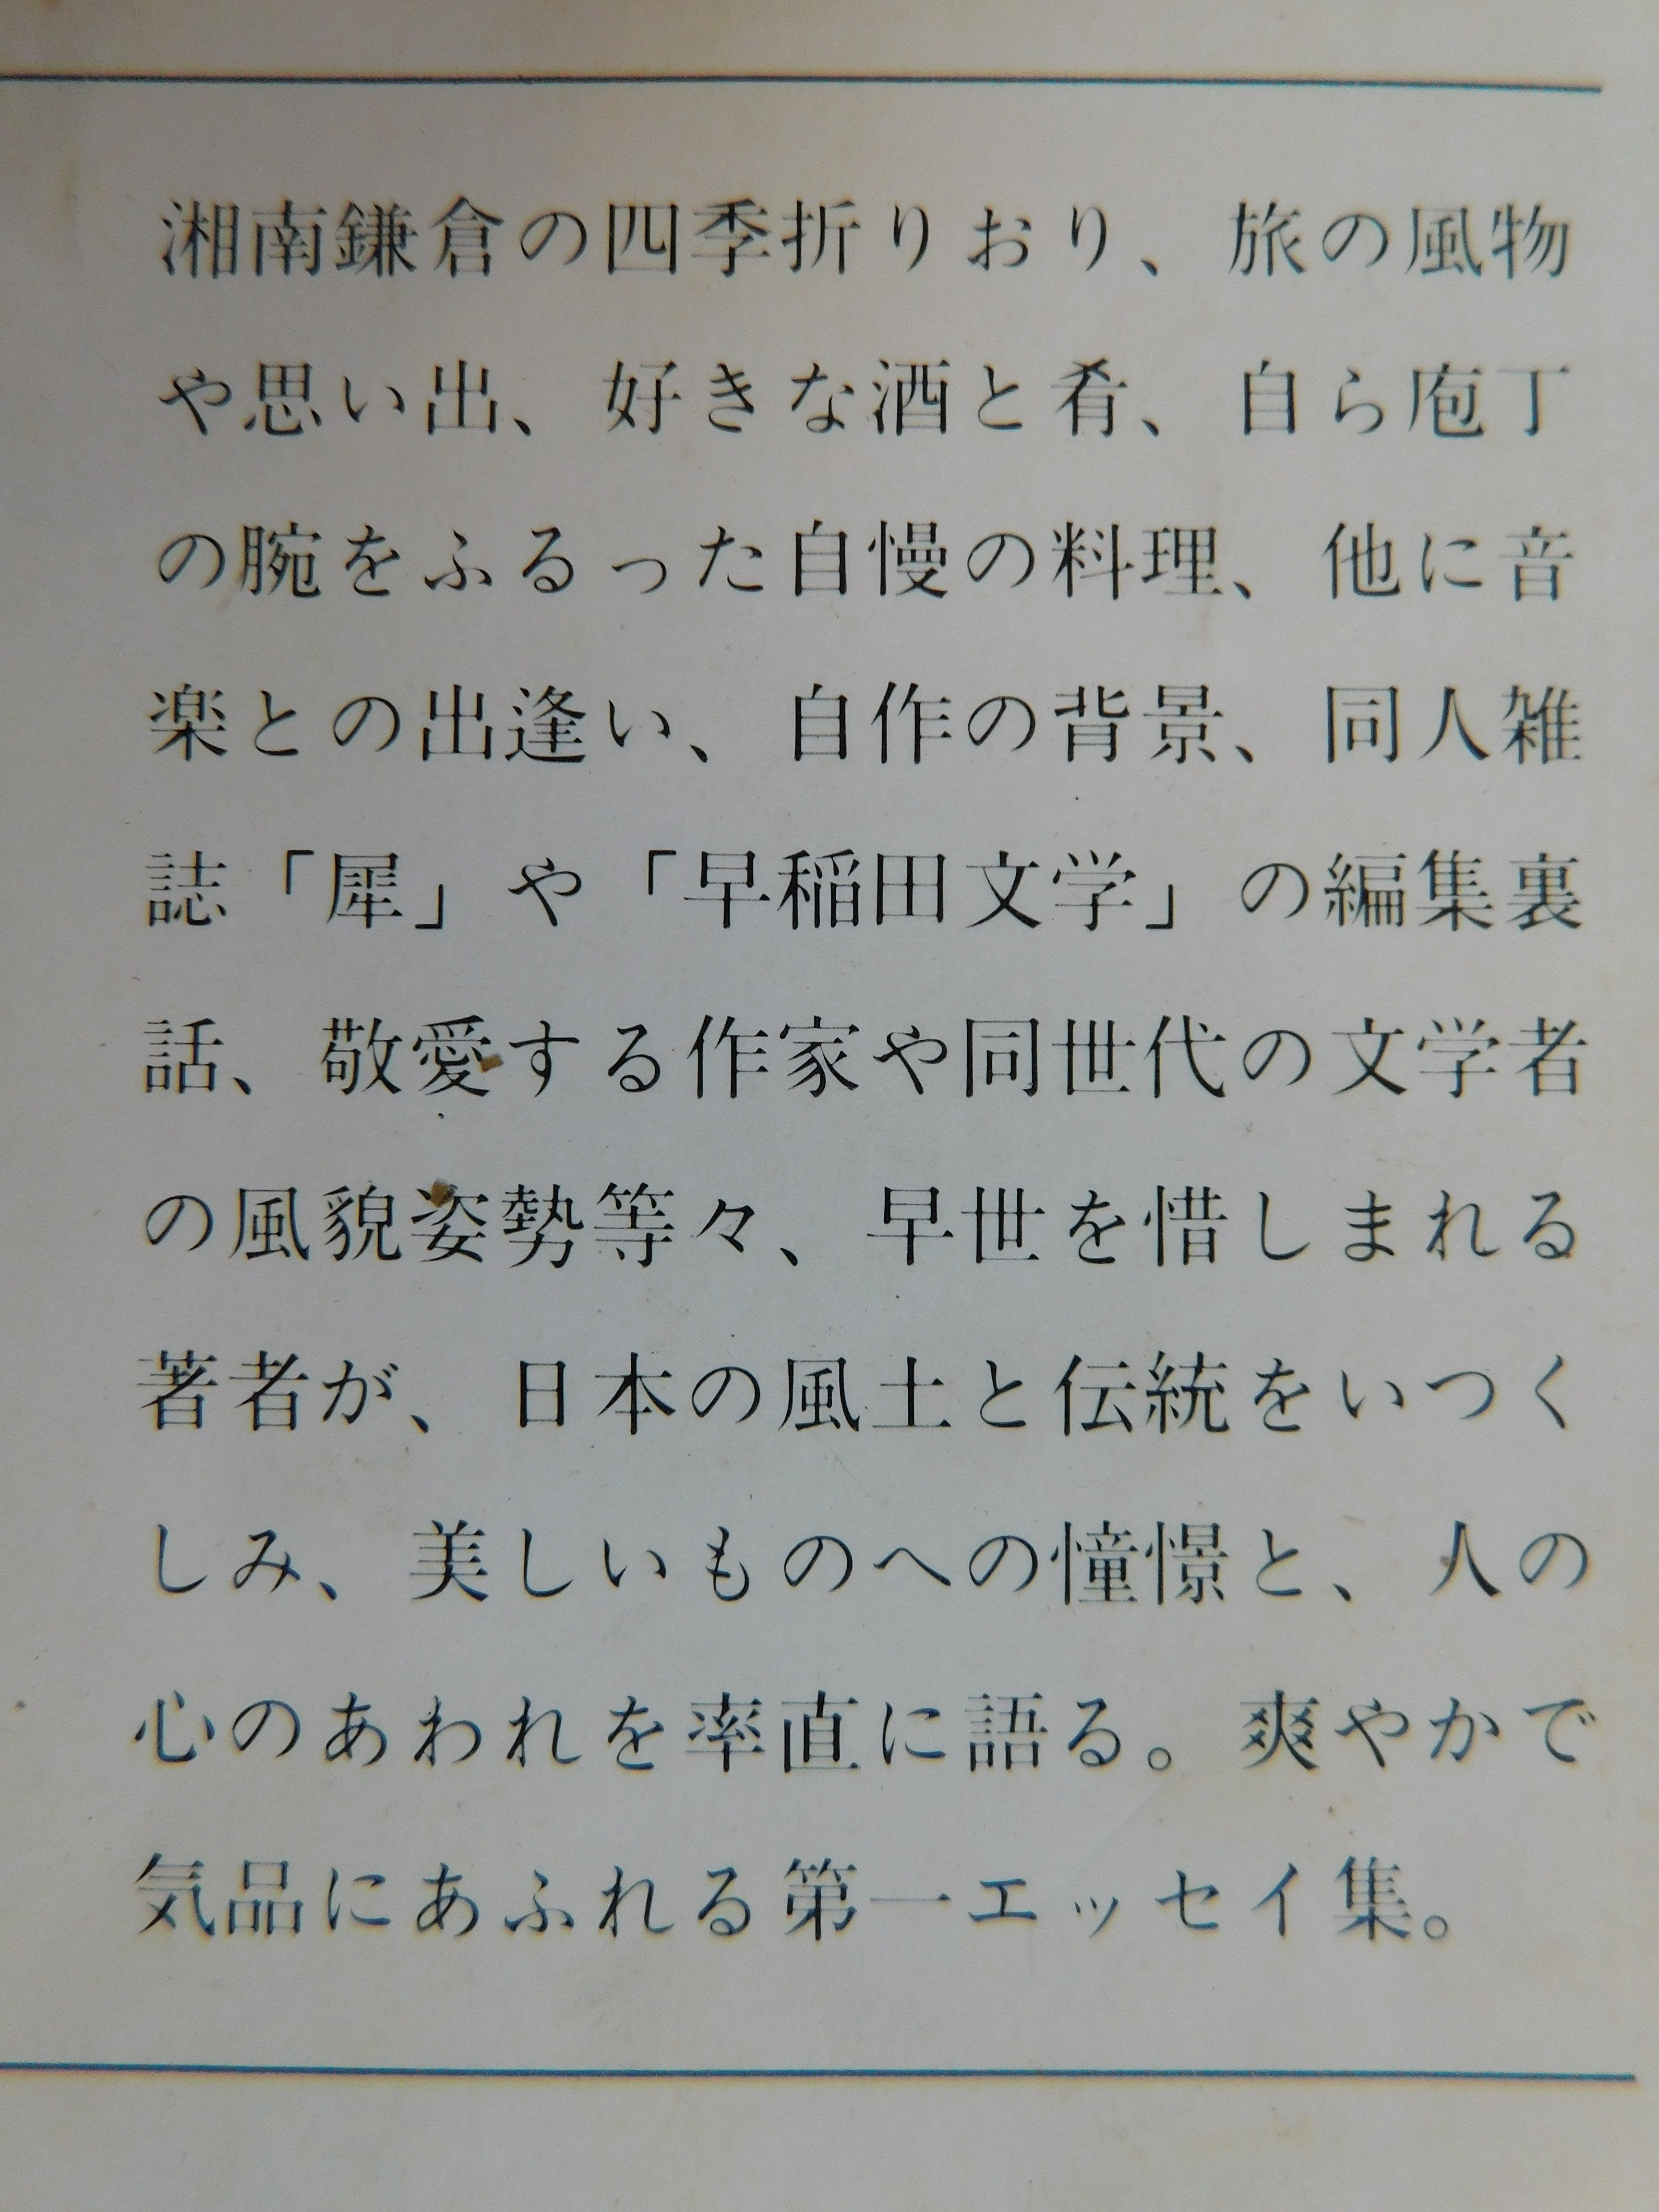 湘南鎌倉の四季折りおり、旅の風物
や思い出、好きな酒と肴、自ら庖丁
の腕をふるった自慢の料理、他に音
楽との出逢い、自作の背景、同人雑
誌「犀」や「早稲田文学」の編集裏
話、敬愛する作家や同世代の文学者
の風貌姿勢等々、早世を惜しまれる
著者が、日本の風土と伝統をいつく
しみ、美しいものへの憧憬と、人の
心のあわれを率直に語る。爽やかで
気品にあふれる第一エッセイ集。